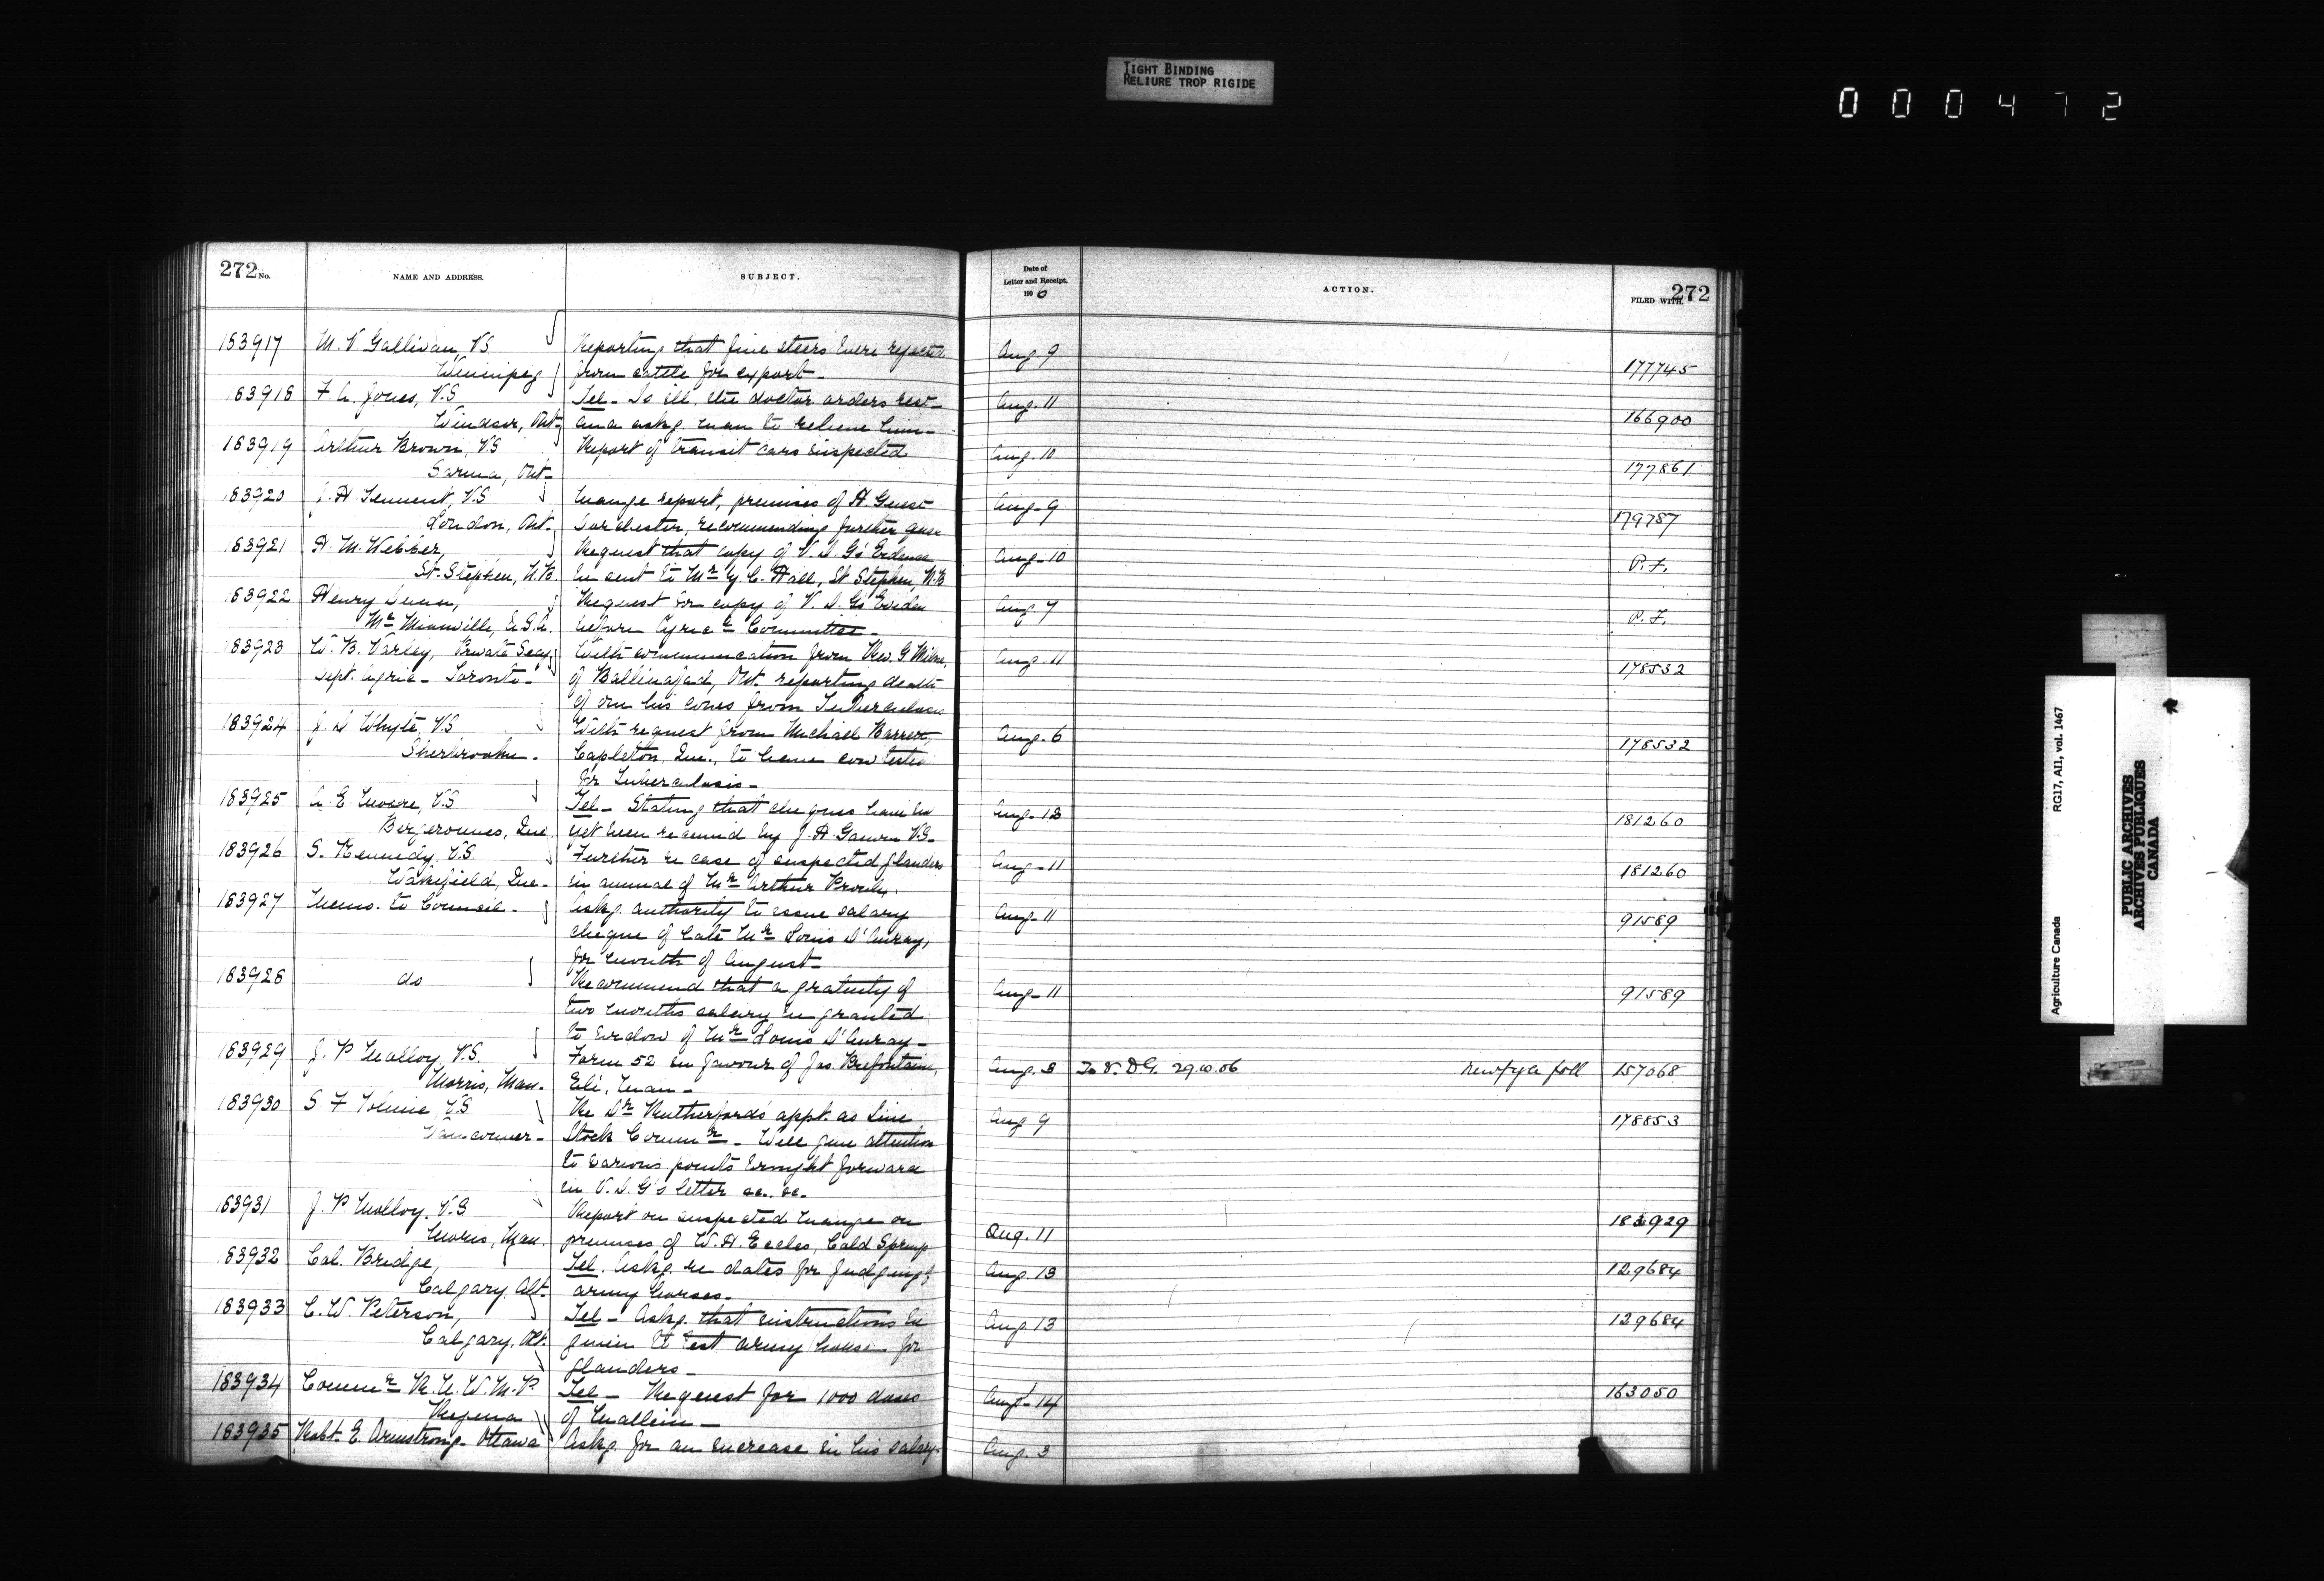 TIGHT BINDING
RELIURE TROP RIGIDE
000472
272 No.
NAME AND ADDRESS.
SUBJECT.
Date of
Letter and Receipt.
1906
ACTION.
FILED WITH
272
183917 M. V Gallivan, V.S Reporting that five steers were rejected Aug. 9
Winnipeg from cattle for export- 177745
183918 F. A. Jones, V.S Tel- Is ill, the doctor orders rest- Aug. 11
Windsor, Ont- and askg. man to relieve him- 166900
183919 Arthur Brown, V.S Report of transit cars inspected Aug. 10
Sarnia, Ont- 177861
183920 J. H Tennent, V.S Mange report, premises of H Guest Aug-9
London, Ont- Dorchester, recommending further quar 179787
183921 H. M. Webber, Request that copy of V. D. G's Evidence Aug-10
St. Stephen, N.B. be sent to Mr. C. Hall, St Stephen, N.B P. F.
183922 Henry Request for copy of V. D. G's Eviden Aug. 7
U.S.A. before Agric Committee- P. F.
183923 W. B. Varley, Private Secy. With communication from Rev. G Milne, Aug. 11
Dept. Agric- Toronto- of Ballinafad, Ont. reporting death 178532
of one his cows from Tuberculosis
183924 J. D Whyte, V.S With request from Michael Barrett, Aug. 6
Sherbrooke- Capleton, Que., to have cow tested 178532
for Tuberculosis-
183925 A. E. Moore, V.S Tel- Stating that cheques have not Aug-12
Bergeronnes, Que yet been received by J. H. V.S- 181260
183926 S. Kennedy, V.S Further re case of suspected glanders Aug-11
Wakefield, Que- in animal of Mr Arthur Proulx. 181260
183927 Memo. to Council- Askg. authority to issue salary Aug-11
cheque of late Mr Louis D'Auray, 91589
for month of August-
183928 do Recommend that a gratuity of Aug-11
two months salary be granted 91589
to widow of Mr Louis D'Auray-
183929 J. P Molloy, V.S. Form 52 in favour of Jas. Prefontaine, Aug. 8 To V. D.G. 29.10.06 157068
Morris, Man- Eli, Man-
183930 S F Tolmie, V.S Re Dr Rutherford's appt. as Live Aug 9
Vancouver- Stock Commr- Will give attention 178853
to various points brought forward
in V. D. G's letter &c. &c.
183931 J. P Molloy, V.S Report on suspected Mange on 183929
Morris, Man. premises of W. H. Eccles, Cold Springs Aug. 11
183932 Col. Bridge, Tel. Askg. re dates for judging of Aug. 13 129684
Calgary, Alt- army horses-
183933 C. W. Peterson, Tel- Askg. that instructions be Aug. 13 129684
Calgary, Alt. given to test army horses for
glanders-
183934 Commr R. N. W. M. P. Tel- Request for 1000 doses Aug-14 163050
Regina of Mallein-
183935 Robt. E. Armstrong- Ottawa Askg. for an increase in his salary- Aug. 3
Agriculture Canada RG17, AII, vol. 1467
PUBLIC ARCHIVES
ARCHIVES PUBLIQUES
CANADA